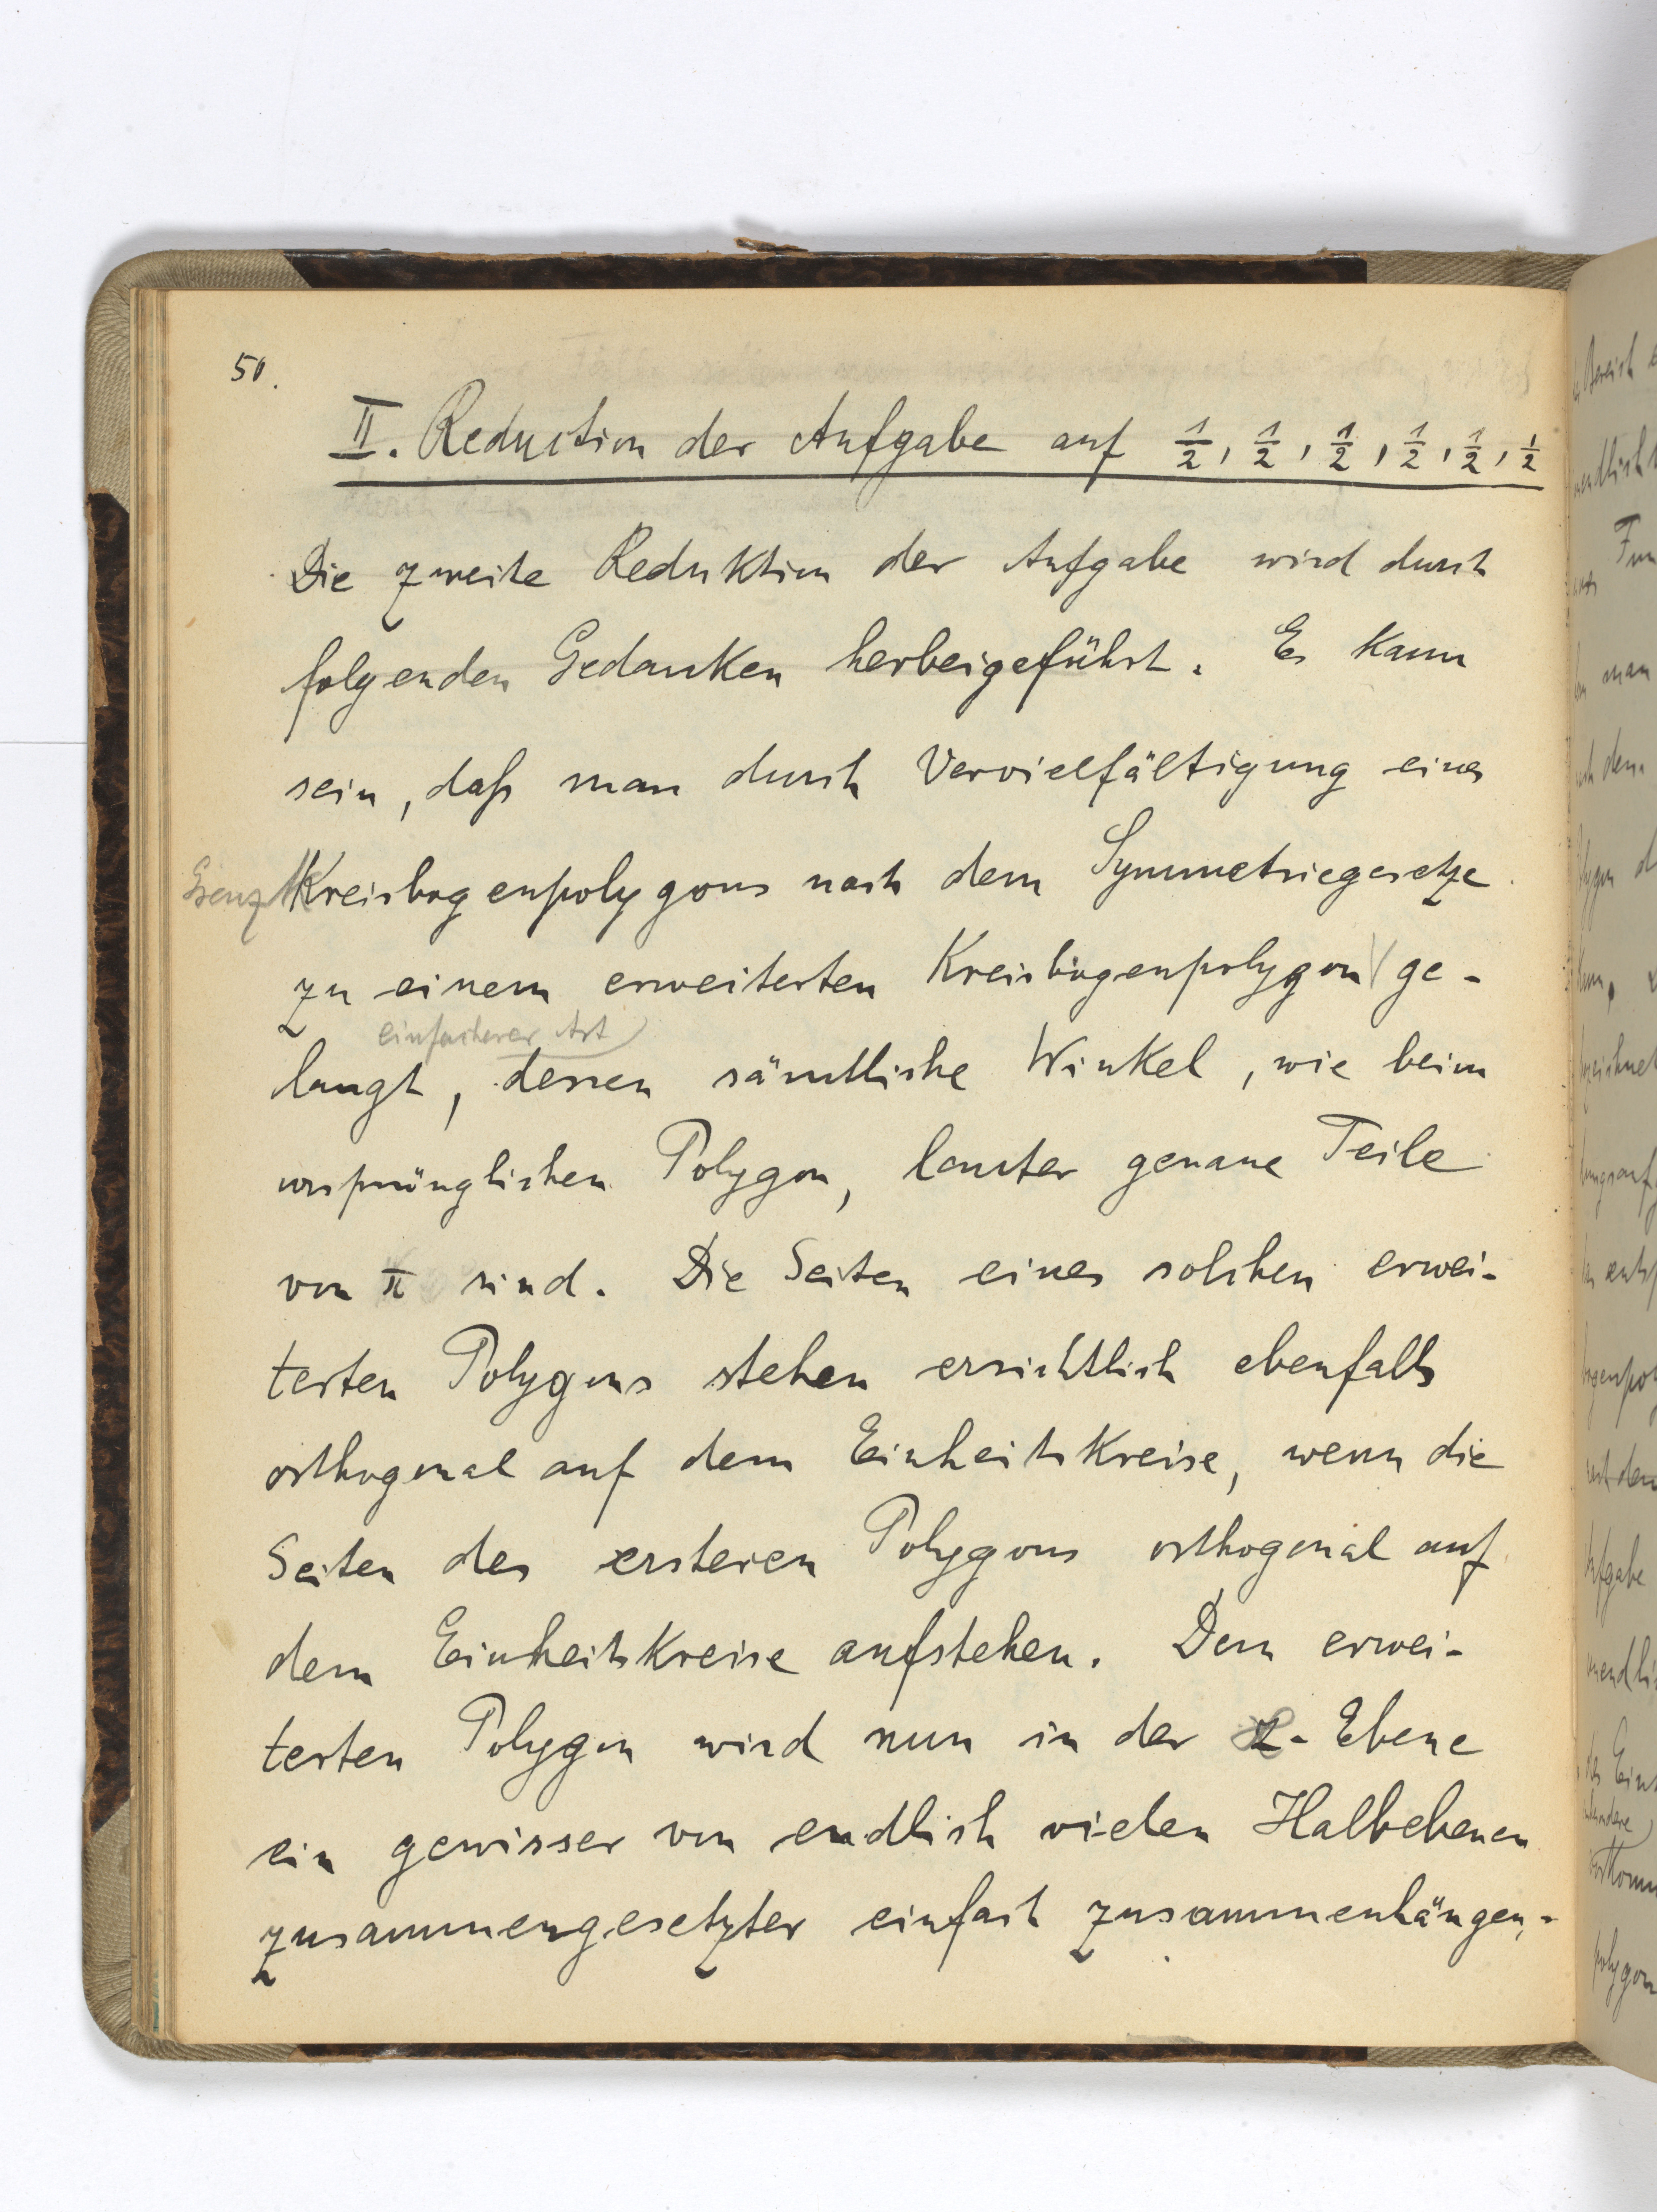 50.
II. Reduction der Aufgabe auf 1/2, 1/2, 1/2, 1/2, 1/2, 1/2
Die zweite Reduktion der Aufgabe wird durch
folgenden Gedanken herbeigeführt. Es kann
sein, daß man durch Vervielfältigung eines
Kreisbogenpolygons nach dem Symmetriegesetze
zu einem erweiterten Kreisbogenpolygon ge-
einfacherer Art
langt, dessen sämtliche Winkel, wie beim
ursprünglichen Polygon, lauter genaue Teile
von π sind. Die Seiten eines solchen erwei-
terten Polygons stehen ersichtlich ebenfalls
orthogonal auf dem Einheitskreise, wenn die
Seiten des ersteren Polygons orthogonal auf
dem Einheitskreise aufstehen. Dem erwei-
terten Polygon wird nun in der z-Ebene
ein gewisser von endlich vielen Halbebenen
zusammengesetzter einfach zusammenhängen-